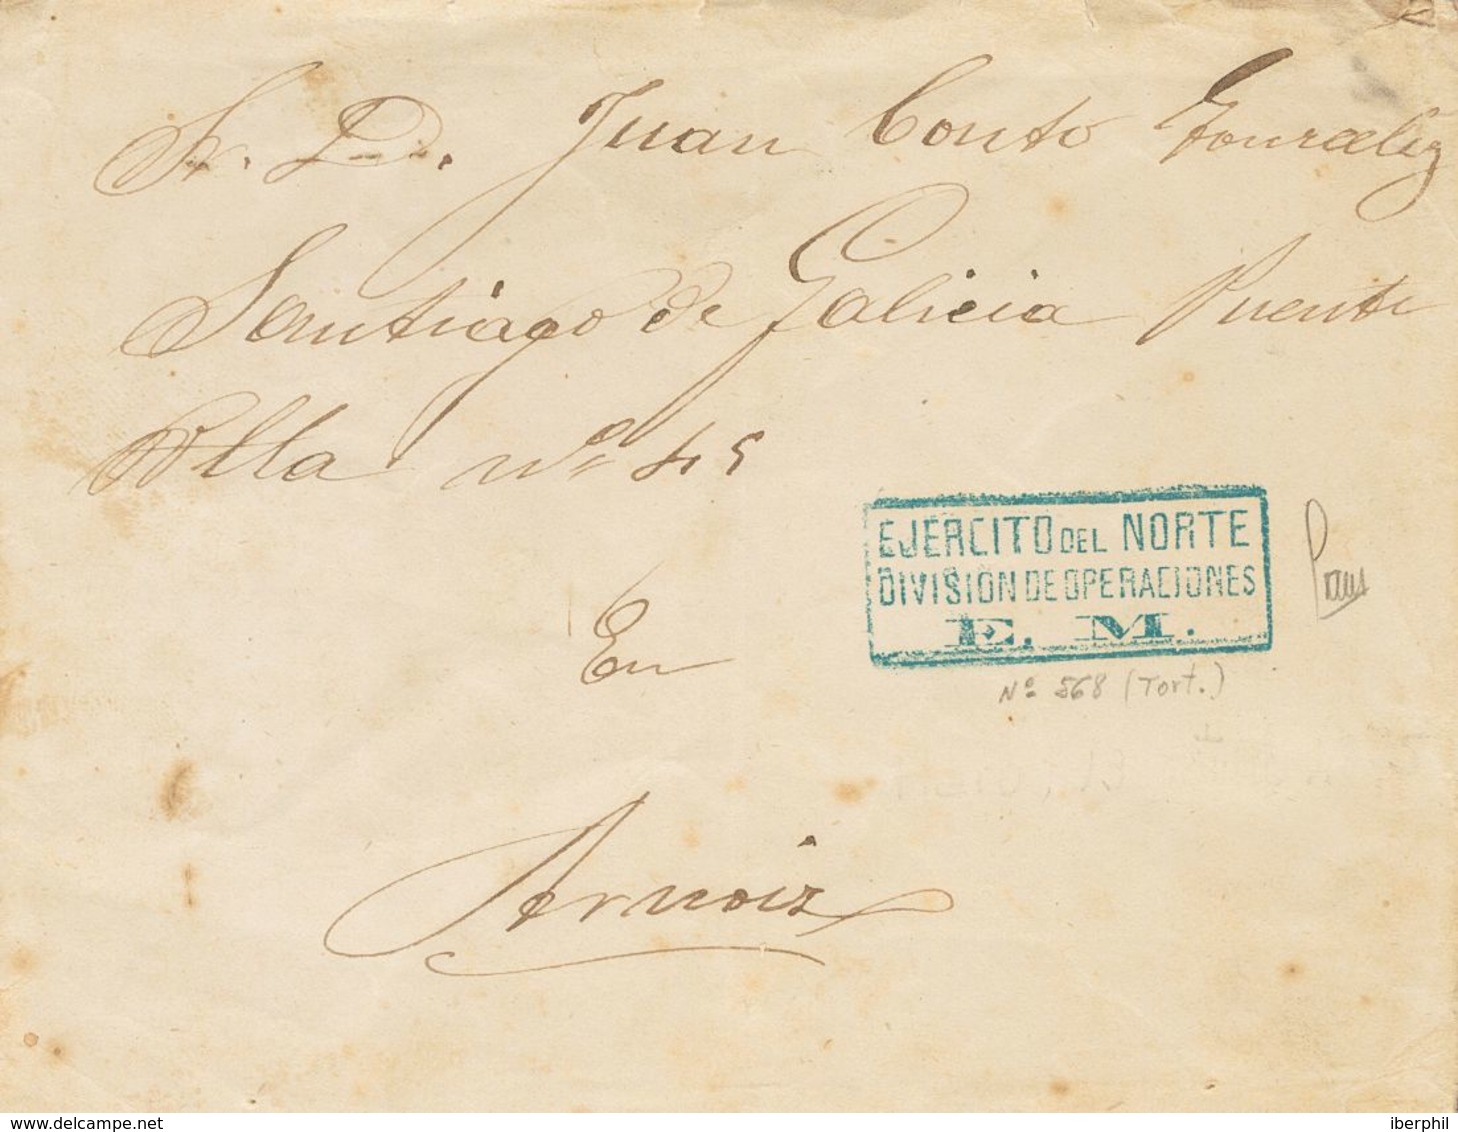 Sr. D. Juan Couto Gonzalez
Santiago de Galicia Puente
Ulla nº 45
EJERCITO DEL NORTE
DIVISIÓN DE OPERACIONES
E. M.
Nº 568 (Tort.)
En
Arnois
delcampe.net
iberphil